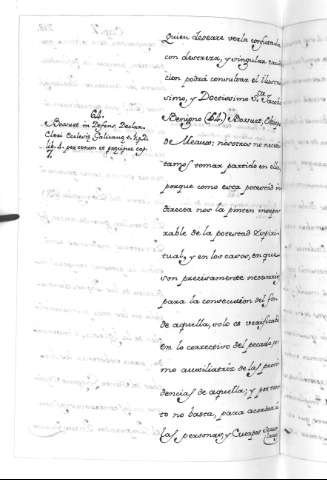 Quien deseare verla confutada
con destreza, y singular erudi
cion podrá consultar el Ilustri
simo, y Doctissimo Sr. Jacobo
Benigno (64.) Bossuet, Obispo
de Meaux; nosotros no necesi
tamos tomar partido en ella,
porque como esta potestad in
directa nos la pinten insepa
rable de la potestad Espiri
tual, y en los casos, en que
son precisamente necesarios
para la consecucion del fin
de aquella, solo se verificará
en lo correctivo del pecado, co
mo auxiliatriz de las provi
dencias de aquella; y por tan
to no basta, para
las personas, y Cuerpos
64.
Bossuet in Defens. Declar.
Cleri
lib. 1. per totum et
7.